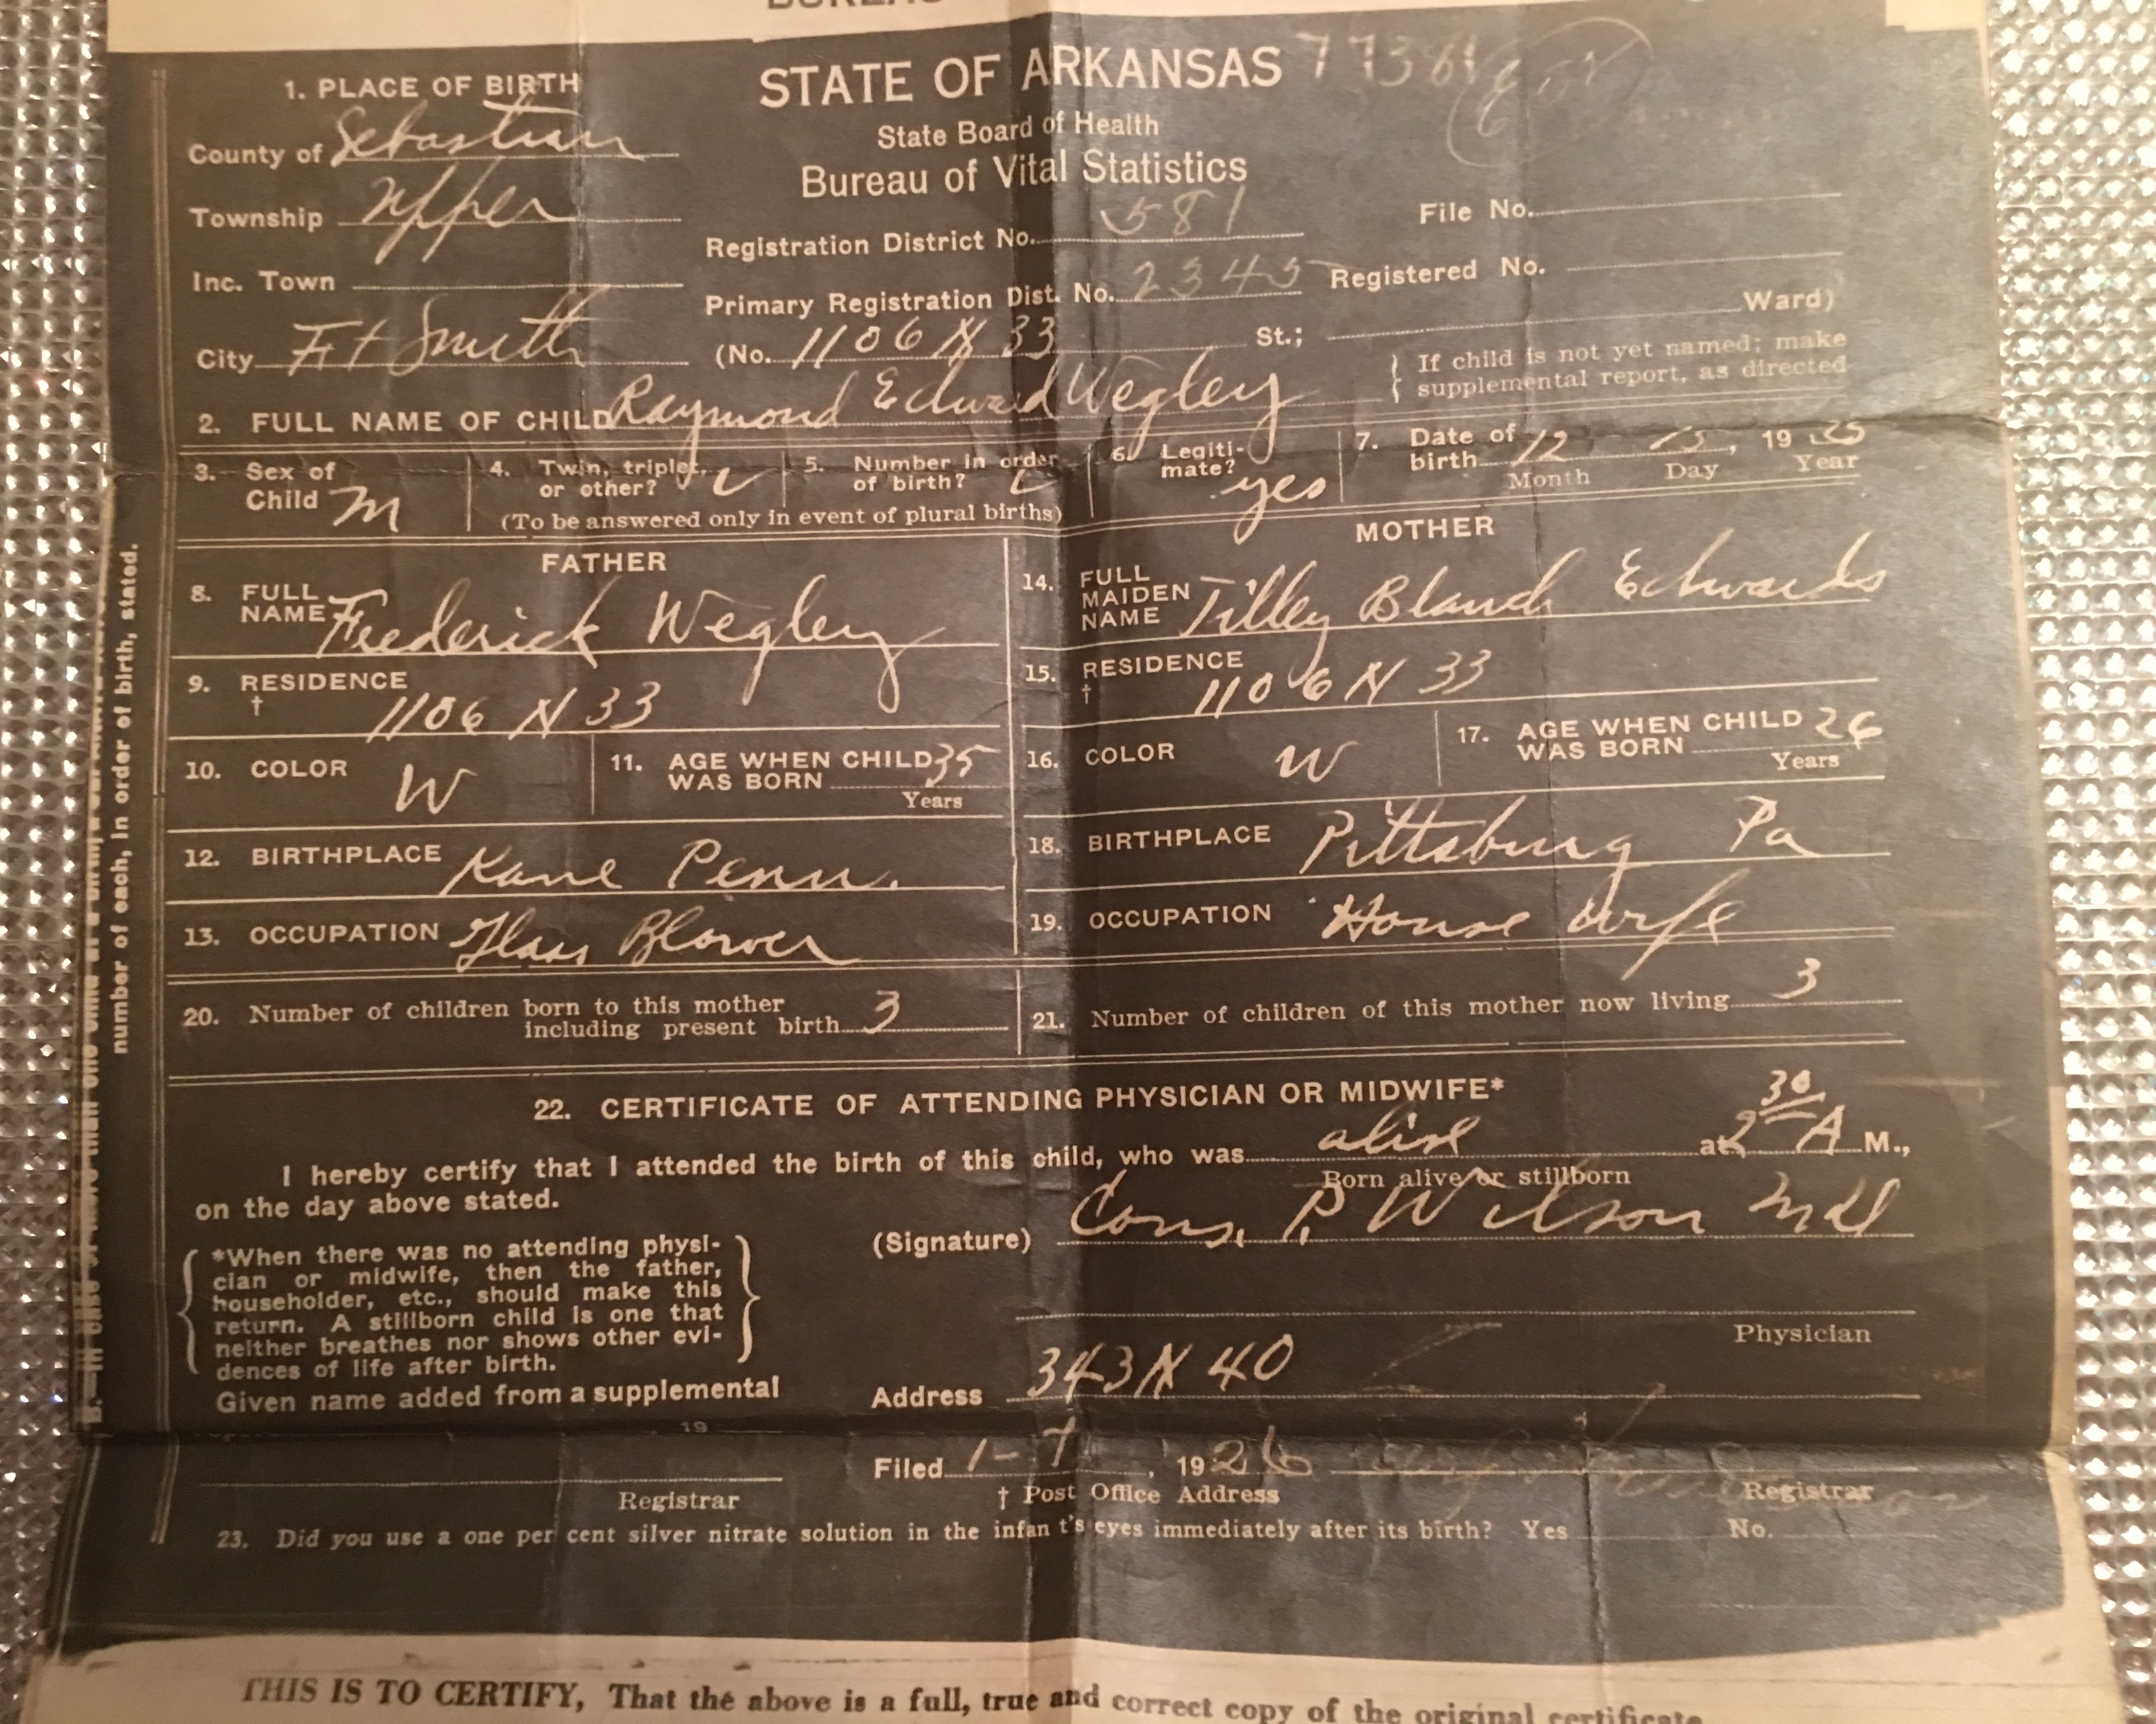 STATE OF ARKANSAS
State Board of Health
Bureau of Vital Statistics
1. PLACE OF BIRTH
County of Sebastian
Township Upper
Inc. Town
City Ft Smith
Registration District No. 581
File No.
Primary Registration Dist. No. 2345
Registered No.
(No. 1106 N 33 St.; Ward)
2. FULL NAME OF CHILD Raymond Edward Wegley
If child is not yet named; make
supplemental report, as directed
3. Sex of
Child M
4. Twin, triplet,
or other?
5. Number in order
of birth?
(To be answered only in event of plural births)
6. Legiti-
mate? yes
7. Date of
birth 12, 1925
Month Day Year
FATHER
8. FULL
NAME Frederick Wegley
9. RESIDENCE
† 1106 N 33
10. COLOR W
11. AGE WHEN CHILD 35
WAS BORN
Years
12. BIRTHPLACE Kane Penn.
13. OCCUPATION Glass Blower
MOTHER
14. FULL
MAIDEN
NAME Tilley Edwards
15. RESIDENCE
† 1106 N 33
16. COLOR W
17. AGE WHEN CHILD 26
WAS BORN
Years
18. BIRTHPLACE Pittsburg Pa
19. OCCUPATION House Wife
20. Number of children born to this mother
including present birth 3
21. Number of children of this mother now living 3
22. CERTIFICATE OF ATTENDING PHYSICIAN OR MIDWIFE*
I hereby certify that I attended the birth of this child, who was alive at 2 30 A M.,
Born alive or stillborn
on the day above stated.
(Signature) P. Wilson
Physician
*When there was no attending physi-
cian or midwife, then the father,
householder, etc., should make this
return. A stillborn child is one that
neither breathes nor shows other evi-
dences of life after birth.
Given name added from a supplemental
Address 343 N 40
19
Filed 1-7, 1926
Registrar
† Post Office Address
Registrar
23. Did you use a one per cent silver nitrate solution in the infant's eyes immediately after its birth? Yes No.
number of each, in order of birth, stated.
THIS IS TO CERTIFY, That the above is a full, true and correct copy of the original certificate